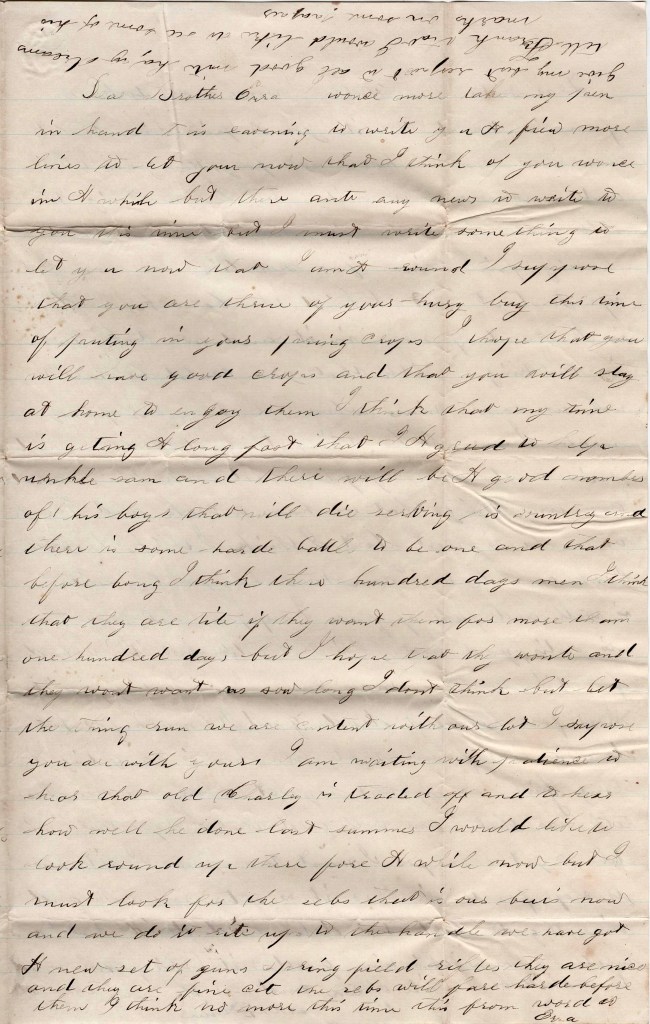 give my best respect to all good mit hapy dreams
tell Frank that I would like to see some of his
marks on some paper
Dea Brother Ezra wonce more take my pen
in hand t is eavening to write y u A fiew more
lines to let you now that I think of you wonce
in A while but there ante any news to write to
you t is time but I must write something to
let y u now that I am A round I suppose
that you are thrue of your hury buy this time
of puting in your spring crops I hope that you
will have good crops and that you will stay
at home to engoy them I think that my time
is geting A long fast that I A greed to
unkle sam and there will be A good number
of his boys that will die serving is country and
there is some harde batle to be one and that
before long I think the hundred days men I think
that they are tite if they want them for more tham
one hundred days but I hope that thy wonte and
they wont want us sow long I dont think but let
the thing run we are content with our lot I supose
you are with yours I am waiting with patience to
hear that old Charly is traded off and to hear
how well he done last summer I would like to
look round up there fore A while now but I
must look for the rebs that is our buis now
and we do it rite up to the handle we have got
A new set of guns spring field rifles they are nice
and they are fine cite the rebs will fare harde before
them I think no more this time this from
Ezra